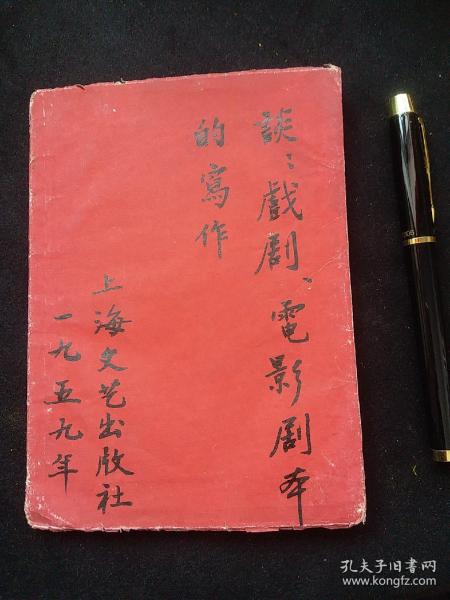 談：戲剧、電影剧本
的寫作
上海文艺出版社
一九五九年
孔夫子旧书网
www.kongfz.com